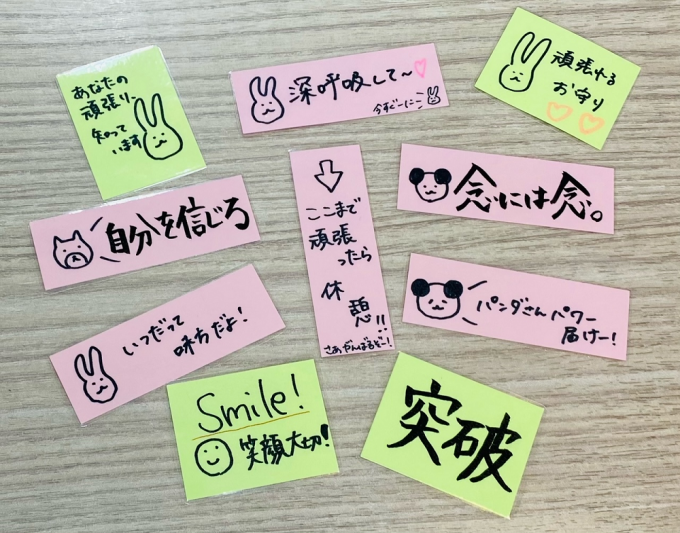 あなたの
頑張り、
知って
います
深呼吸して〜
今すぐーに
頑張れる
お守り
自分を信じろ
ここまで
頑張
ったら
休
憩!!
さぁがんばるぞー!
念には念。
いつだって
味方だよ!
パンダさんパワー
届けー!
Smile!
笑顔大切!
突破